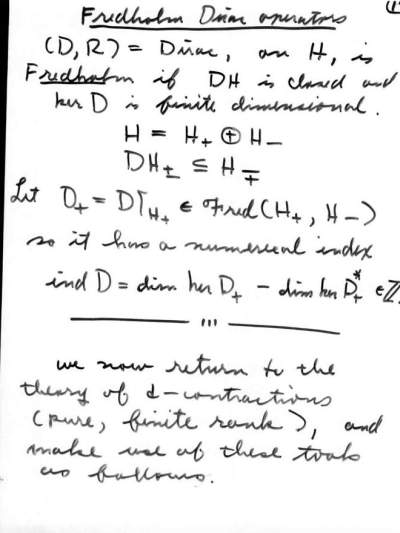 Fredholm Dirac operators
(D, R) = Dirac, on H, is
Fredholm if DH is closed and
ker D is finite dimensional.
H = H₊ ⊕ H₋
DH± ⊆ H∓
Let D₊ = D↾H₊ ∈ Fred(H₊, H₋)
so it has a numerical index
ind D = dim ker D₊ − dim ker D₊* ∈ ℤ.
we now return to the
theory of d-contractions
(pure, finite rank), and
make use of these tools
as follows.